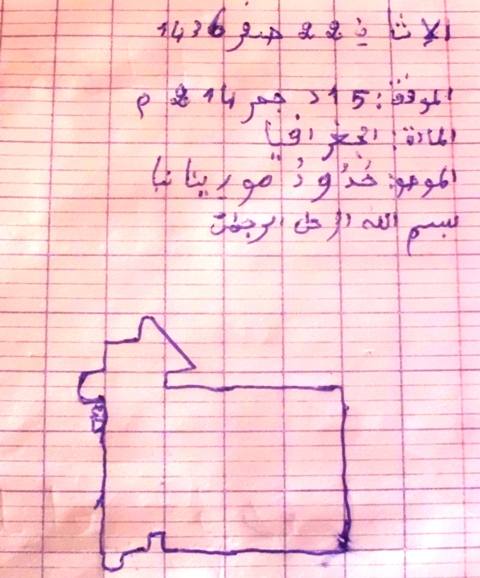 الإثنين 22 صفر 1436
الموفق: 15 دجمبر 214 2 م
المادة: الجغرافيا
الموضو: حُدُودُ موريتانيا
بسم الله الرحمن الرحيم